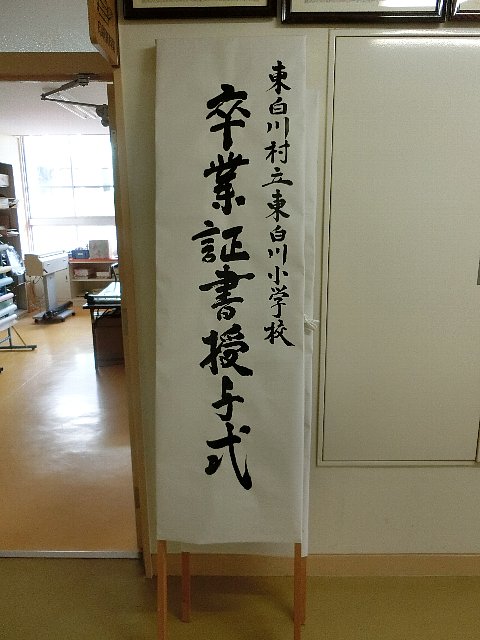 東白川村立東白川小学校
卒業証書授与式